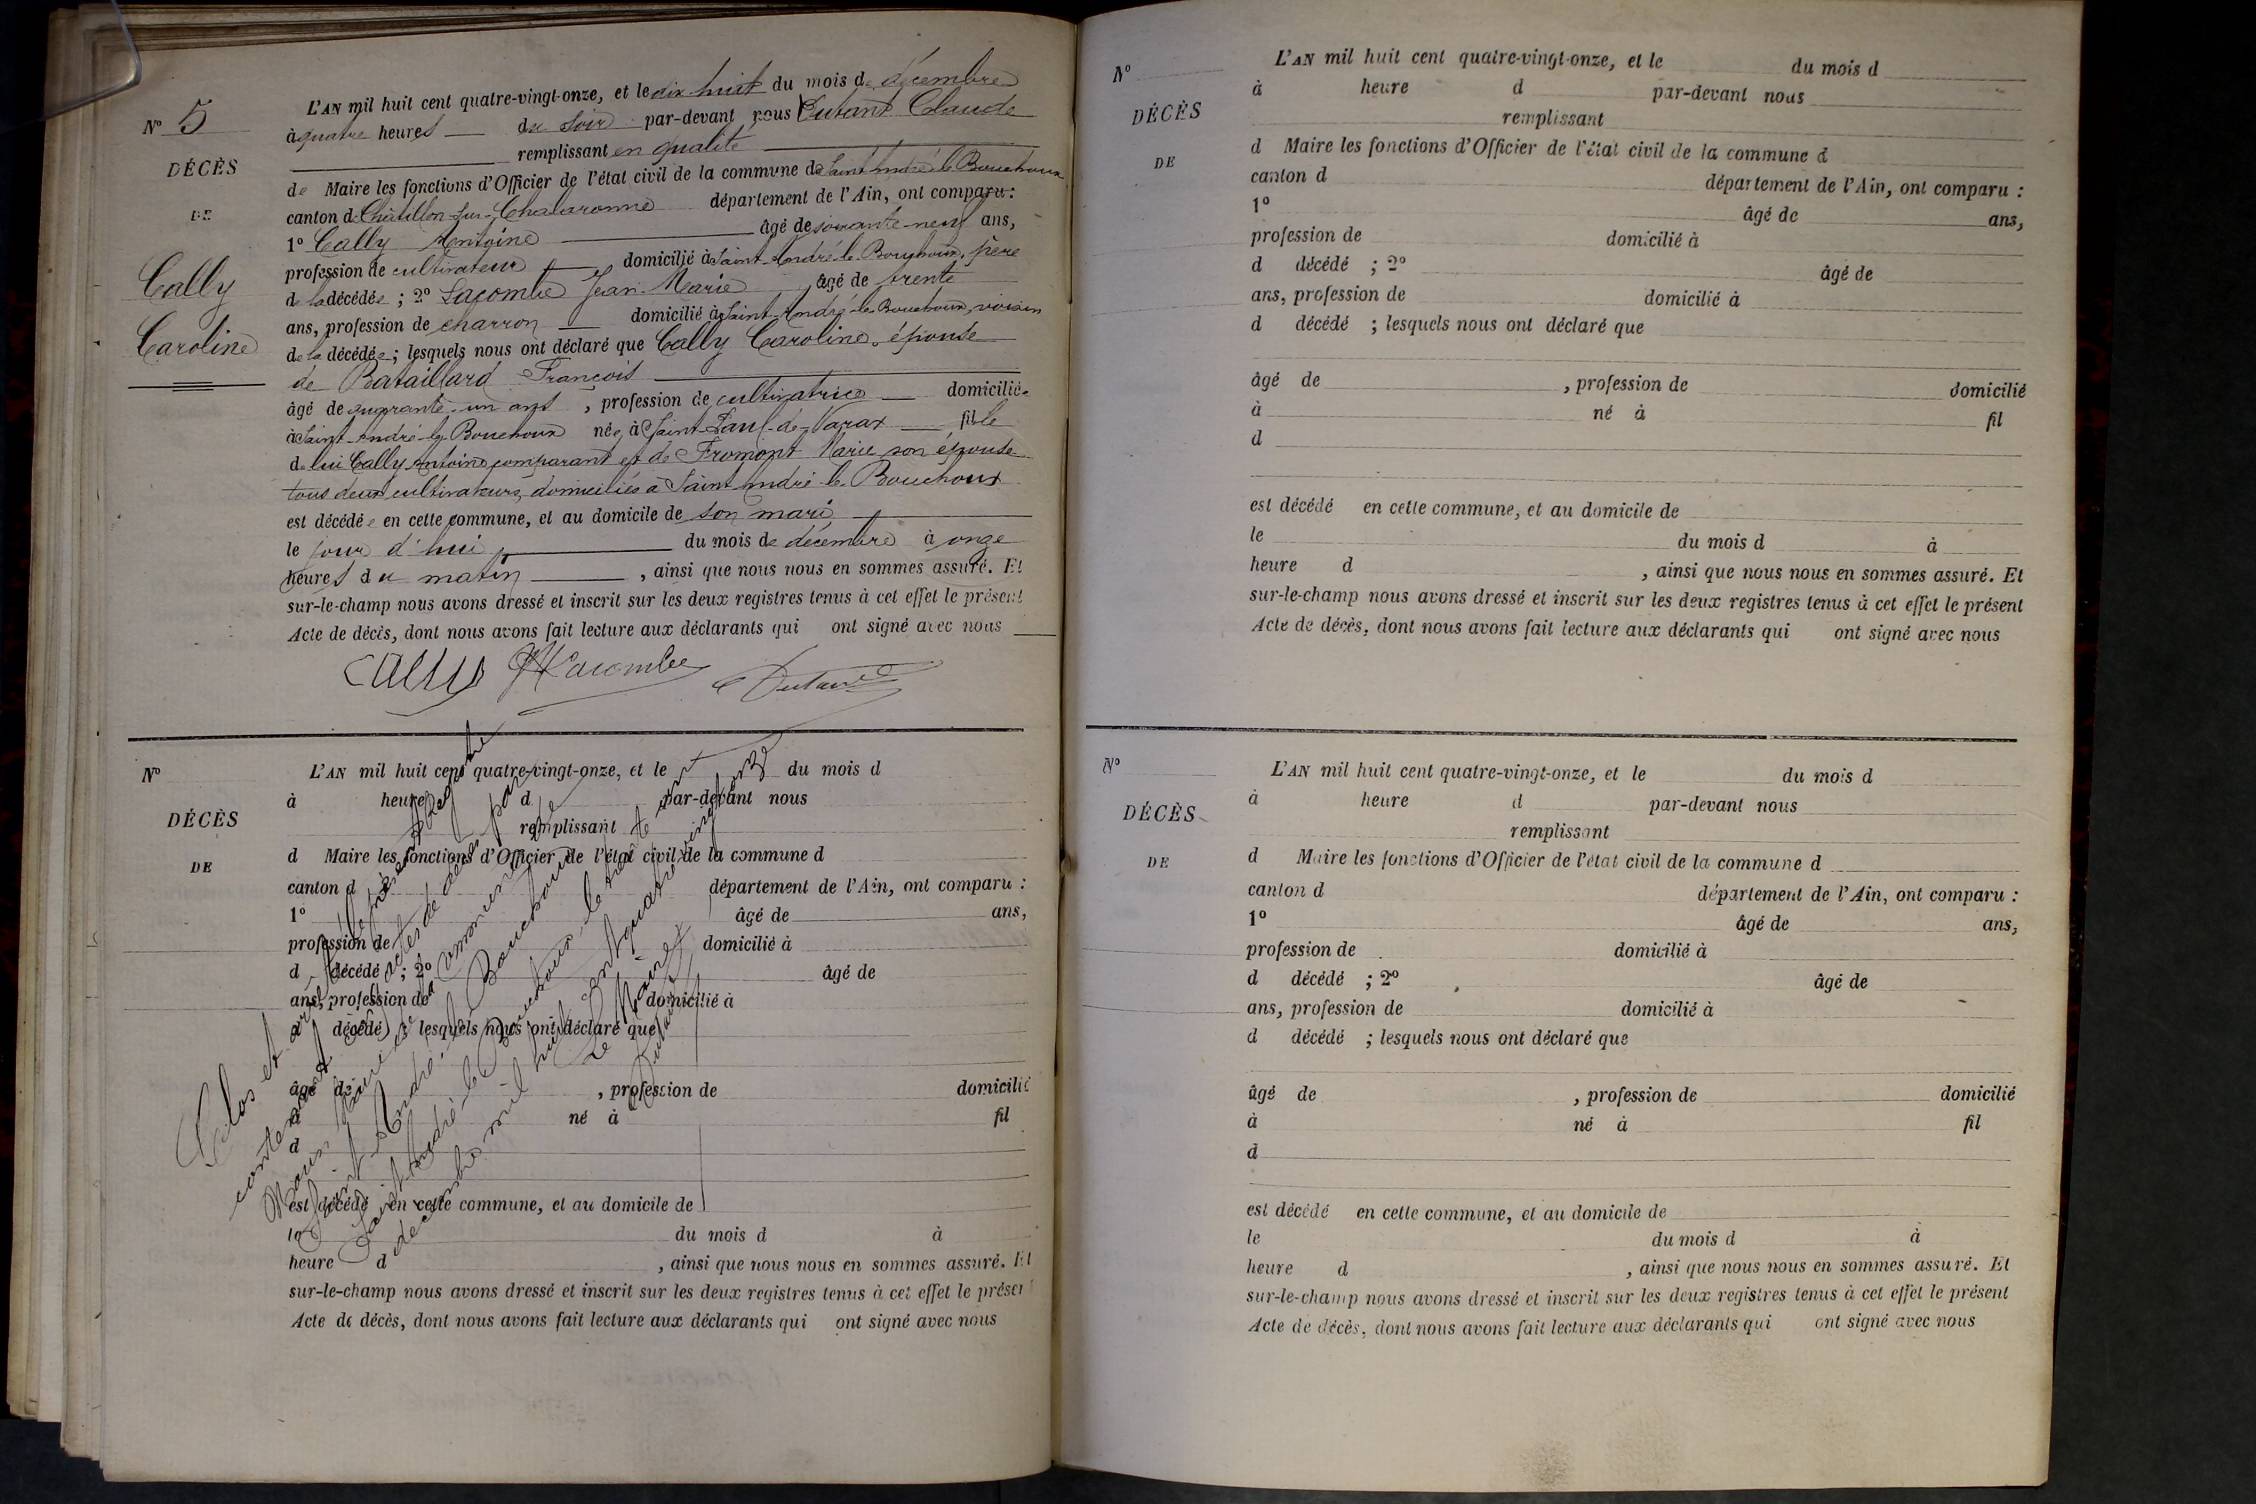 N° 5
DÉCÈS
DE
Cally
Caroline
L'AN mil huit cent quatre-vingt-onze, et le dix-huit du mois de décembre
à quatre heures du soir par-devant nous Dutant Claude
remplissant en qualité
de Maire les fonctions d'Officier de l'état civil de la commune de Saint-André-le-Bouchoux
canton de Châtillon-sur-Chalaronne département de l'Ain, ont comparu :
1° Cally Antoine âgé de soixante-neuf ans,
profession de cultivateur domicilié à Saint-André-le-Bouchoux, père
de la décédée ; 2° Lacombe Jean-Marie âgé de trente
ans, profession de charron domicilié à Saint-André-le-Bouchoux, voisin
de la décédée ; lesquels nous ont déclaré que Cally Caroline, épouse
de Bataillard François
âgé de quarante-un ans , profession de cultivatrice domiciliée
à Saint-André-le-Bouchoux née à Saint-Paul-de-Varax fille
de lui Cally Antoine comparant et de Fromont Marie son épouse
tous deux cultivateurs domiciliés à Saint André-le-Bouchoux
est décédée en cette commune, et au domicile de son mari
le jour d'hui du mois de décembre à onze
heures du matin , ainsi que nous nous en sommes assuré. Et
sur-le-champ nous avons dressé et inscrit sur les deux registres tenus à cet effet le présent
Acte de décès, dont nous avons fait lecture aux déclarants qui ont signé avec nous
Cally JM Lacombe Dutant
N°
DÉCÈS
DE
L'AN mil huit cent quatre-vingt-onze, et le du mois d
à heure d par-devant nous
remplissant
d Maire les fonctions d'Officier de l'état civil de la commune d
canton d département de l'Ain, ont comparu :
1° âgé de ans,
profession de domicilié à
d décédé ; 2° âgé de
ans, profession de domicilié à
d décédé ; lesquels nous ont déclaré que
âgé de , profession de domicilié
à né à fil
d
est décédé en cette commune, et au domicile de
le du mois d à
heure d , ainsi que nous nous en sommes assuré. Et
sur-le-champ nous avons dressé et inscrit sur les deux registres tenus à cet effet le présent
Acte de décès, dont nous avons fait lecture aux déclarants qui ont signé avec nous
Clos et arrêté le présent Registre
contenant actes de décès par
Nous Maire de la commune de
Saint-André-le-Bouchoux
Saint-André-le-Bouchoux le trente et un
décembre mil huit cent quatre vingt onze
Le Maire
Dutant
N°
DÉCÈS
DE
L'AN mil huit cent quatre-vingt-onze, et le du mois d
à heure d par-devant nous
remplissant
d Maire les fonctions d'Officier de l'état civil de la commune d
canton d département de l'Ain, ont comparu :
1° âgé de ans,
profession de domicilié à
d décédé ; 2° âgé de
ans, profession de domicilié à
d décédé ; lesquels nous ont déclaré que
âgé de , profession de domicilié
à né à fil
d
est décédé en cette commune, et au domicile de
le du mois d à
heure d , ainsi que nous nous en sommes assuré. Et
sur-le-champ nous avons dressé et inscrit sur les deux registres tenus à cet effet le présent
Acte de décès, dont nous avons fait lecture aux déclarants qui ont signé avec nous
N°
DÉCÈS
DE
L'AN mil huit cent quatre-vingt-onze, et le du mois d
à heure d par-devant nous
remplissant
d Maire les fonctions d'Officier de l'état civil de la commune d
canton d département de l'Ain, ont comparu :
1° âgé de ans,
profession de domicilié à
d décédé ; 2° âgé de
ans, profession de domicilié à
d décédé ; lesquels nous ont déclaré que
âgé de , profession de domicilié
à né à fil
d
est décédé en cette commune, et au domicile de
le du mois d à
heure d , ainsi que nous nous en sommes assuré. Et
sur-le-champ nous avons dressé et inscrit sur les deux registres tenus à cet effet le présent
Acte de décès, dont nous avons fait lecture aux déclarants qui ont signé avec nous